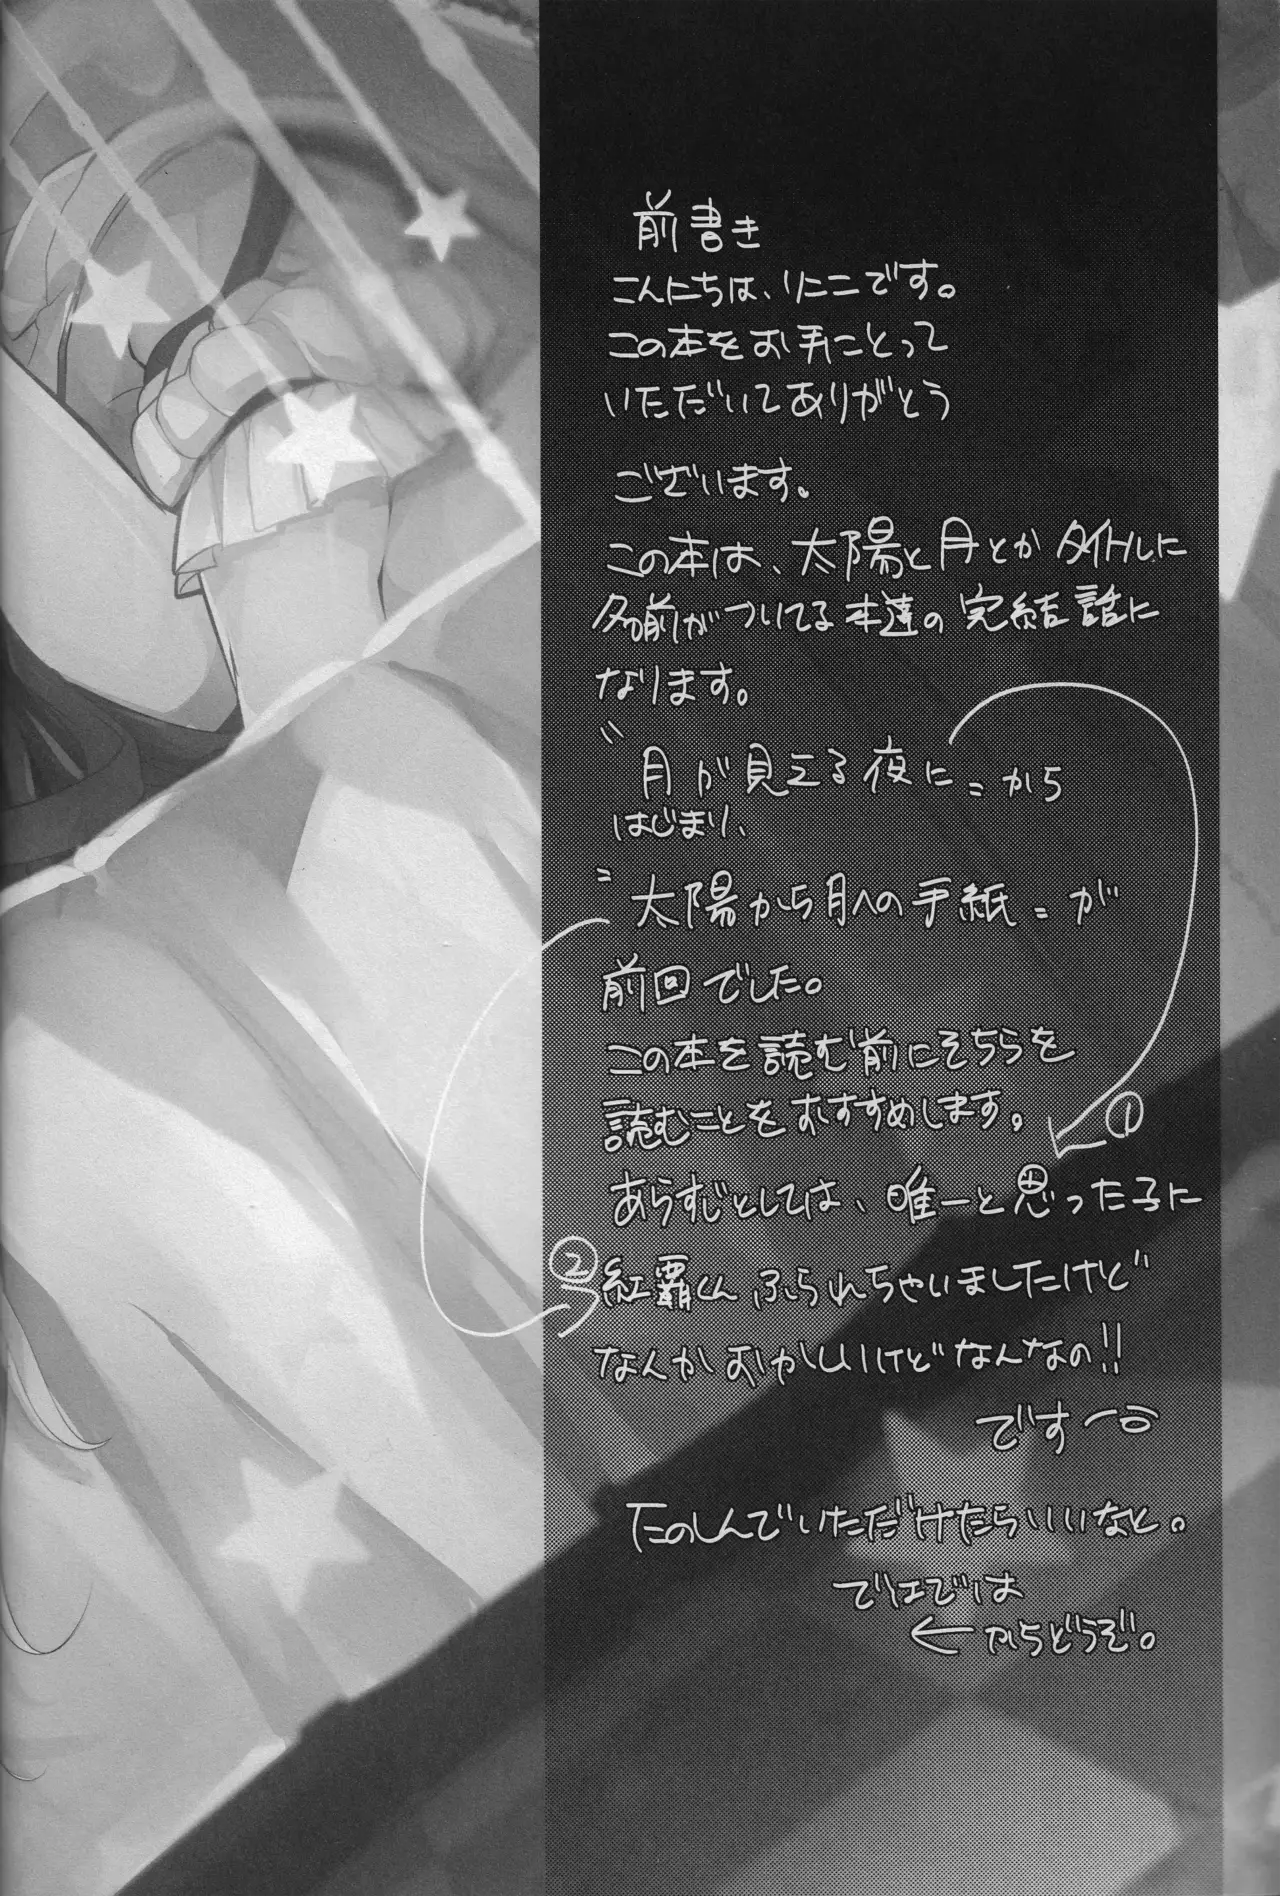 前書き
こんにちは、リニニです。
この本をお手にとって
いただいてありがとう
ございます。
この本は、太陽と月とかタイトルに
名前がついてる本達の完結話に
なります。
"月が見える夜に"から
はじまり、
"太陽から月への手紙"が
前回でした。
この本を読む前にそちらを
読むことをおすすめします。
①
あらすじとしては、唯一と思った子に
②
紅覇くんふられちゃいましたけど
なんかおかしいけどなんなの!!
です
たのしんでいただけたらいいなと。
ではでは
←からどうぞ。